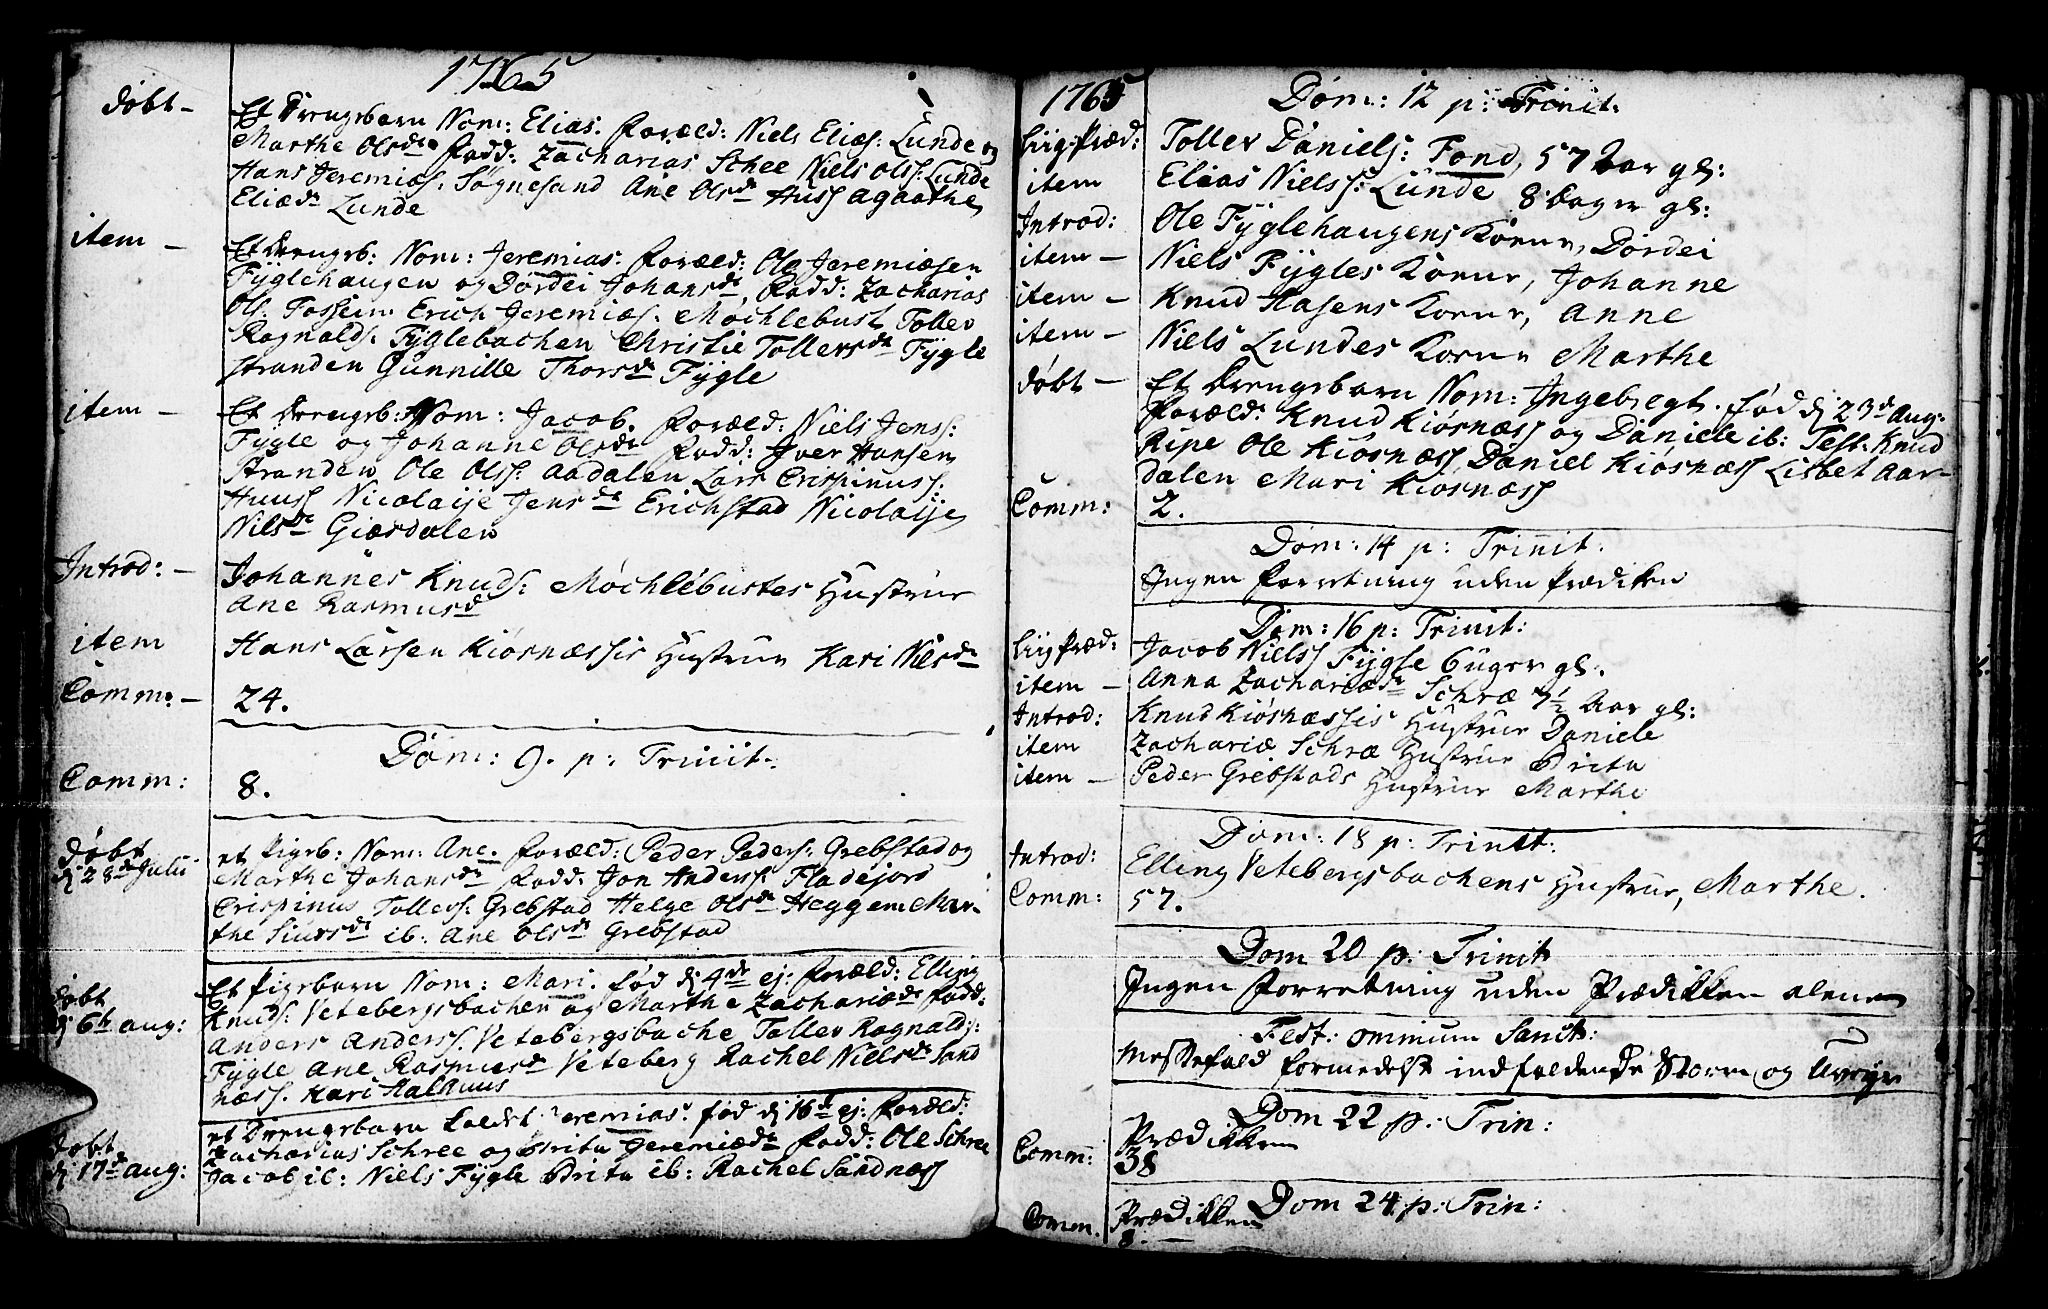 1765
døbt – Et Drengebarn Nom: Elias. Foræld: Niels Eliæs: Lunde og
Marthe Olsdr Fadd: Zacharias Schee Niels Olss: Lunde
Hans Jeremiæs: Søgnesand Ane Olsdr Huss Agaathe
Eliædr Lunde
item – Et Drengeb: Nom: Jeremias: Foræld: Ole Jeremiæsen
Fÿglehaugen og Dordei Johansdr, Fadd: Zacharias
Ols: Fossem Erich Jeremiæs: Møchlebust Tollev
Ragnalds: Fÿglebachen Christie Tollevsdr Fÿgle
stranden Gunnille Thorsdr Fÿgle
item – Et Drengeb: Nom: Jacob. Foræld: Niels Jenss:
Fÿgle og Johanne Olsdr Fadd: Iver Hansen
Stranden Ole Olss: Aadalen Lars Crispinuss:
Huuss Nicolaije Jensdr Erichstad Nicolaije
Nilsdr Giærdalen
Introd: – Johannes Knuds: Møchlebustes Hustrue
Ane Rasmusdr
item Hans Larsen Kiørnæssis Hustrue Kari Nilsdr
Comm: – 24.
Dom: 9. p: Trinit:
Comm: 8.
døbt d 28de Julii et Pigeb: Nom: Ane. Foræld: Peder Peders: Grebstad og
Marthe Johansdr Fadd: Jon Anderss: Fladejord
Crispinus Tollefs: Grebstad Helge Olsdr Heggem Mar-
the Siursdr ib: Ane Olsdr Grebstad
døbt d 6te aug: Et Pigebarn Nom: Mari. fød d 4de ej: Foræld: Elling
Knuds: Vetebergsbachen og Marthe Zachariædr Fadd:
Anders Anderss: Vetebergsbache Tollev Ragnalds:
Fÿgle Ane Rasmusdr Veteberg Rachel Nielsdr Sand
næss. Kari Aalhuus
døbt d 17de aug: et Drengebarn kaldet Jeremias. fød d 16de ej: Foræld:
Zacharias Schree og Brita Jeremiædr Fadd: Ole Schree
Jacob ib: Niels Fÿgle Brita ib: Rachel Sandnæss
1765
Dom: 12 p: Trinit:
Liig:Præd: Tollev Daniels: Fond, 57 Aar gl:
item Elias Nielss: Lunde 8 dager gl:
Introd: Ole Fÿglehaugens Kone, Dordei
item – Niels Fÿgles Kone, Johanne
item – Knud Hasens Kone, Anne
item – Niels Lundes Kone Marthe
døbt – Et Drengebarn Nom: Ingebregt. fød d 23de Aug:
Foræld: Knud Kiørnæss og Daniele ib: Test: Knud
Ripe Ole Kiøsnæss, Daniel Kiøsnæss Lisbet Aar-
dalen Mari Kiøsnæss
Comm: 2.
Dom: 14 p: Trinit:
Ingen Forretning uden Prædiken
Dom: 16 p: Trinit:
Liig Præd: Jacob Nielss Fÿgle 6 uger gl:
item – Anna Zachariædr Schræ 7½ Aar gl:
Introd: Knud Kiøsnæssis Hustrue Daniele
item Zachariæ Schræ Hustrue Brita
item – Peder Grebstads Hustrue Marthe
Dom: 18 p: Trinit:
Introd: Elling Vetebergsbachens Hustrue, Marthe.
Comm: 57.
Dom 20 p: Trinit
Ingen Forretning uden Prædikken alene
Fest: omnium Sanct:
Messefald formedelst indfaldende Storm og Uveyr
Dom 22 p: Trin:
Prædikken
Comm: 38
Dom 24 p: Trin:
Prædikken
Comm. 8.